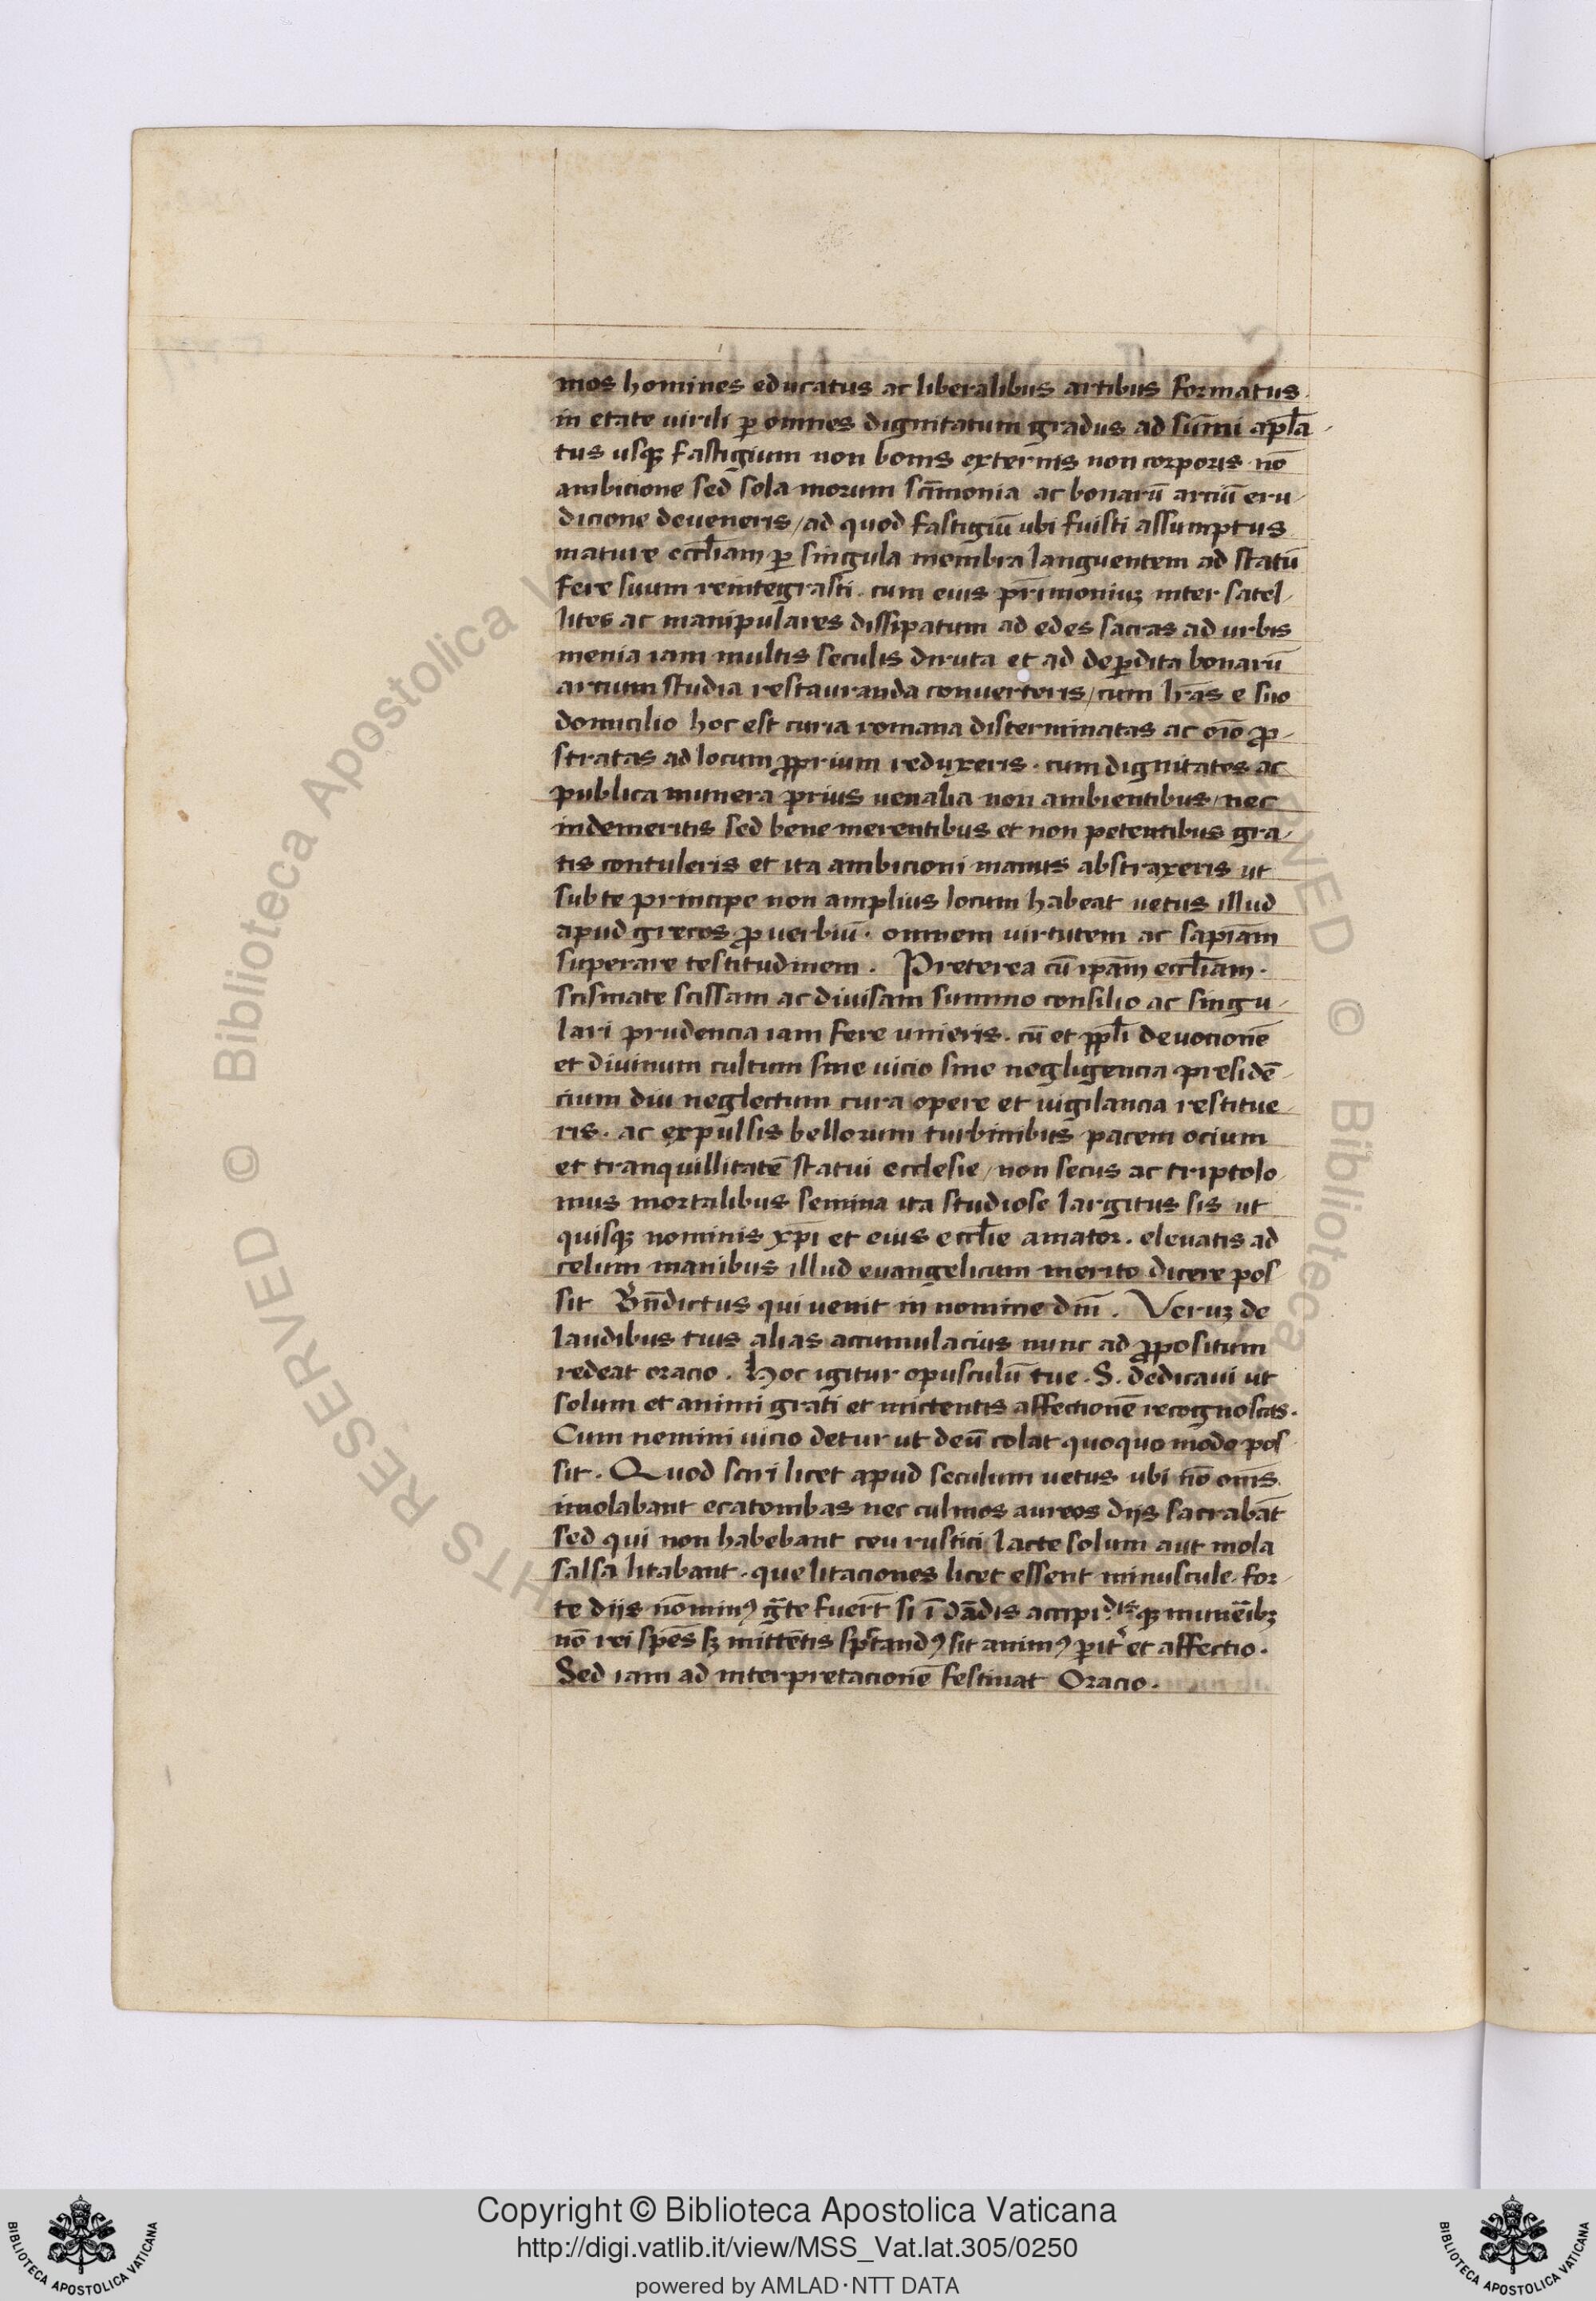 mos homines educatus ac liberalibus artibus formatus.
in etate uirili ꝑ omnes dignitatum gradus ad sum̄i apl̄a-
tus usqꝫ fastigium non bonis externis non corporis nō
ambicione sed sola morum sc̄imonia ac bonarū arciū eru-
dicione deueneris / ad quod fastigiū ubi fuisti assumptus
mature eccl̄iam ꝑ singula membra languentem ad statū
fere suum reintegrasti. cum eius pr̄imoniuꝫ inter satel-
lites ac manipulares dissipatum ad edes sacras ad urbis
menia iam multis seculis diruta et ad deꝑdita bonarū
artium studia restauranda conuerteris / cum lr̄as e suo
domicilio hoc est curia romana disterminatas ac oīo ꝓ-
stratas ad locum ꝓprium reduxeris. cum dignitates ac
publica munera prius uenalia non ambientibus / nec
indemeritis sed bene merentibus et non petentibus gra-
tis contuleris et ita ambicioni manus abstraxeris ut
sub te principe non amplius locum habeat uetus illud
apud grecos ꝓuerbiū. omnem uirtutem ac sapiām
superare testitudinem. Preterea cū ip̄am eccl̄iam.
scismate scissam ac diuisam summo consilio ac singu-
lari prudencia iam fere unieris. cū et ppl̄i deuocionē
et diuinum cultum sine uicio sine negligencia presidē-
cium diu neglectum cura opere et uigilancia restitue-
ris. ac expulsis bellorum turbinibus pacem ocium
et tranquillitatē statui ecclesie / non secus ac triptolo-
mus mortalibus semina ita studiose largitus sis ut
quisqꝫ nominis xp̄i et eius eccl̄ie amator. eleuatis ad
celum manibus illud euangelicum merito dicere pos-
sit Bn̄dictus qui uenit in nomine dn̄i. Veruꝫ de
laudibus tuis alias accumulacius nunc ad ꝓpositum
redeat oracio. Hoc igitur opusculū tue .S. dedicaui ut
solum et animi grati et mictentis affectionē recognoscas.
Cum nemini uicio detur ut deū colat quoquo modo pos-
sit. Quod sciri licet apud seculum uetus ubi nō om̄s
imolabant ecatombas nec culmos aureos dijs sacrabāt
sed qui non habebant ceu rustici lacte solum aut mola
salsa litabant. que litaciones licet essent minuscule. for-
te dijs nōminꝰ gr̄te fuer̄t si ī dādis accipidisqꝫ munēibꝫ
nō rei spēs sꝫ mittētis spc̄tandꝰ sit animꝰ ꝑit͛ et affectio.
Sed iam ad interpretacionē festinat Oracio.
Copyright © Biblioteca Apostolica Vaticana
http://digi.vatlib.it/view/MSS_Vat.lat.305/0250
powered by AMLAD·NTT DATA
BIBLIOTECA APOSTOLICA VATICANA
BIBLIOTECA APOSTOLICA VATICANA